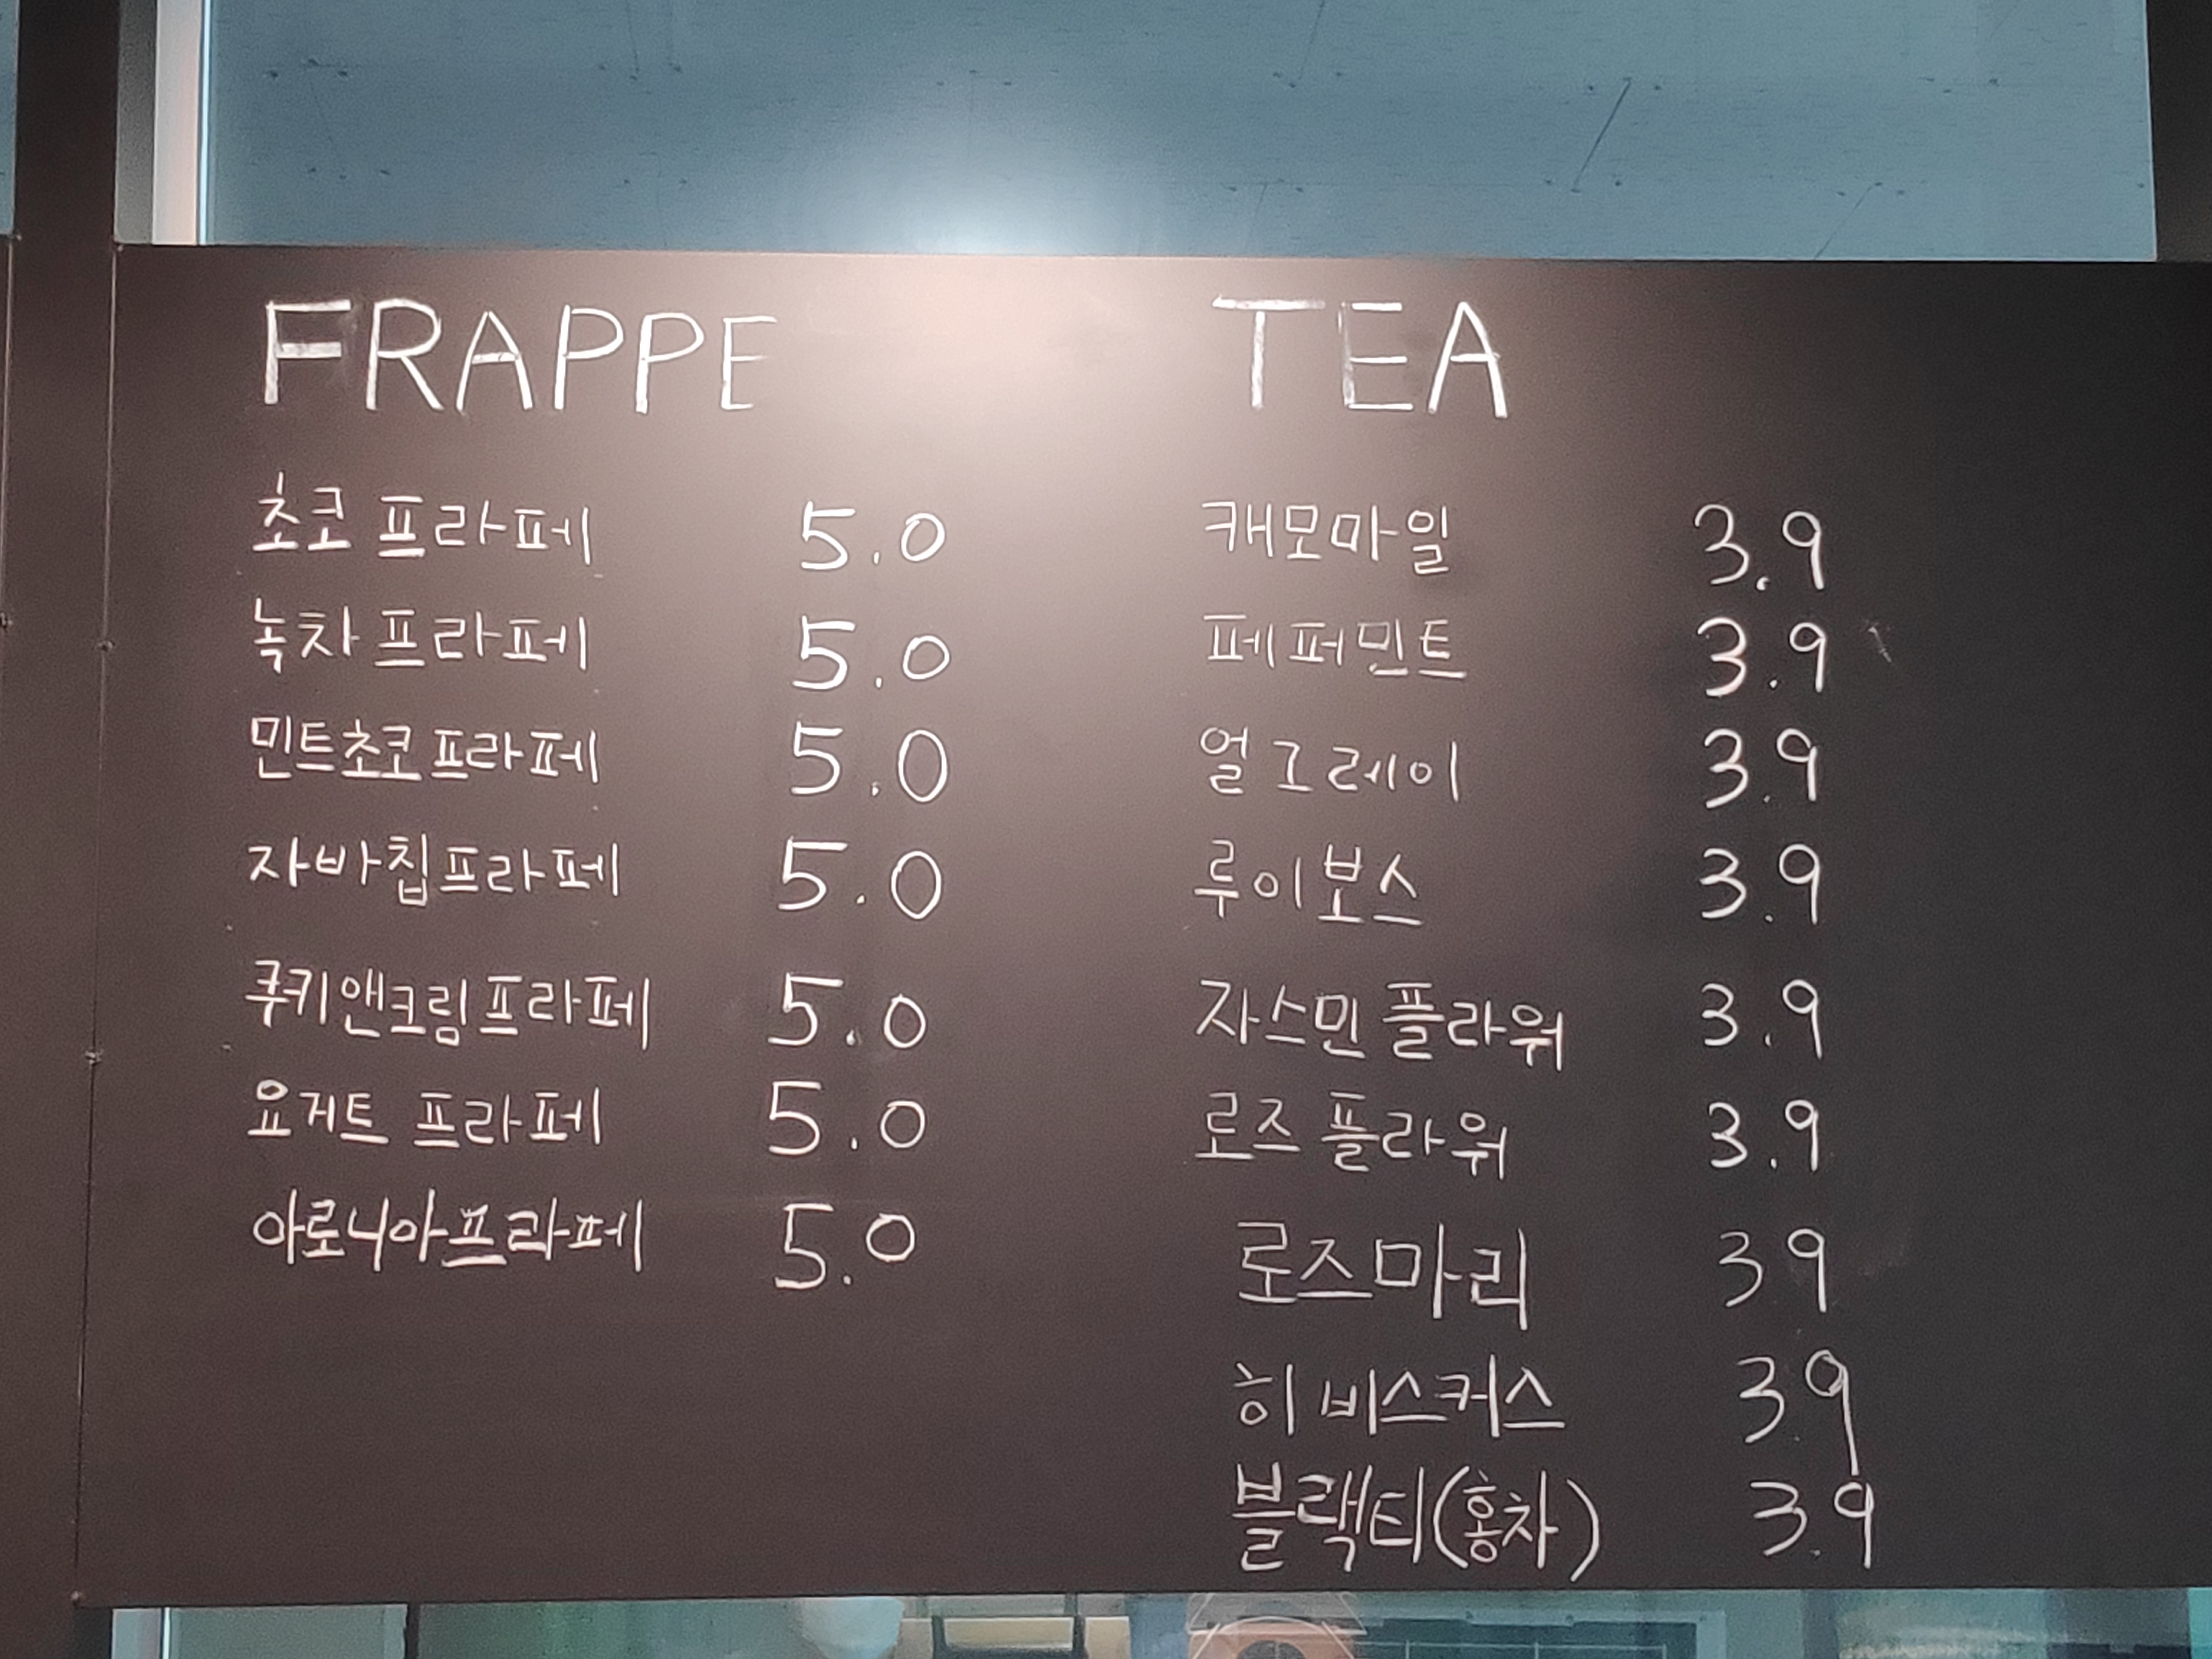 FRAPPE
초코 프라페 5.0
녹차 프라페 5.0
민트초코프라페 5.0
자바칩프라페 5.0
쿠키앤크림프라페 5.0
요거트 프라페 5.0
아로니아프라페 5.0
TEA
캐모마일 3.9
페퍼민트 3.9
얼그레이 3.9
루이보스 3.9
자스민 플라워 3.9
로즈 플라워 3.9
로즈마리 3 9
히비스커스 3.9
블랙티(홍차) 3.9